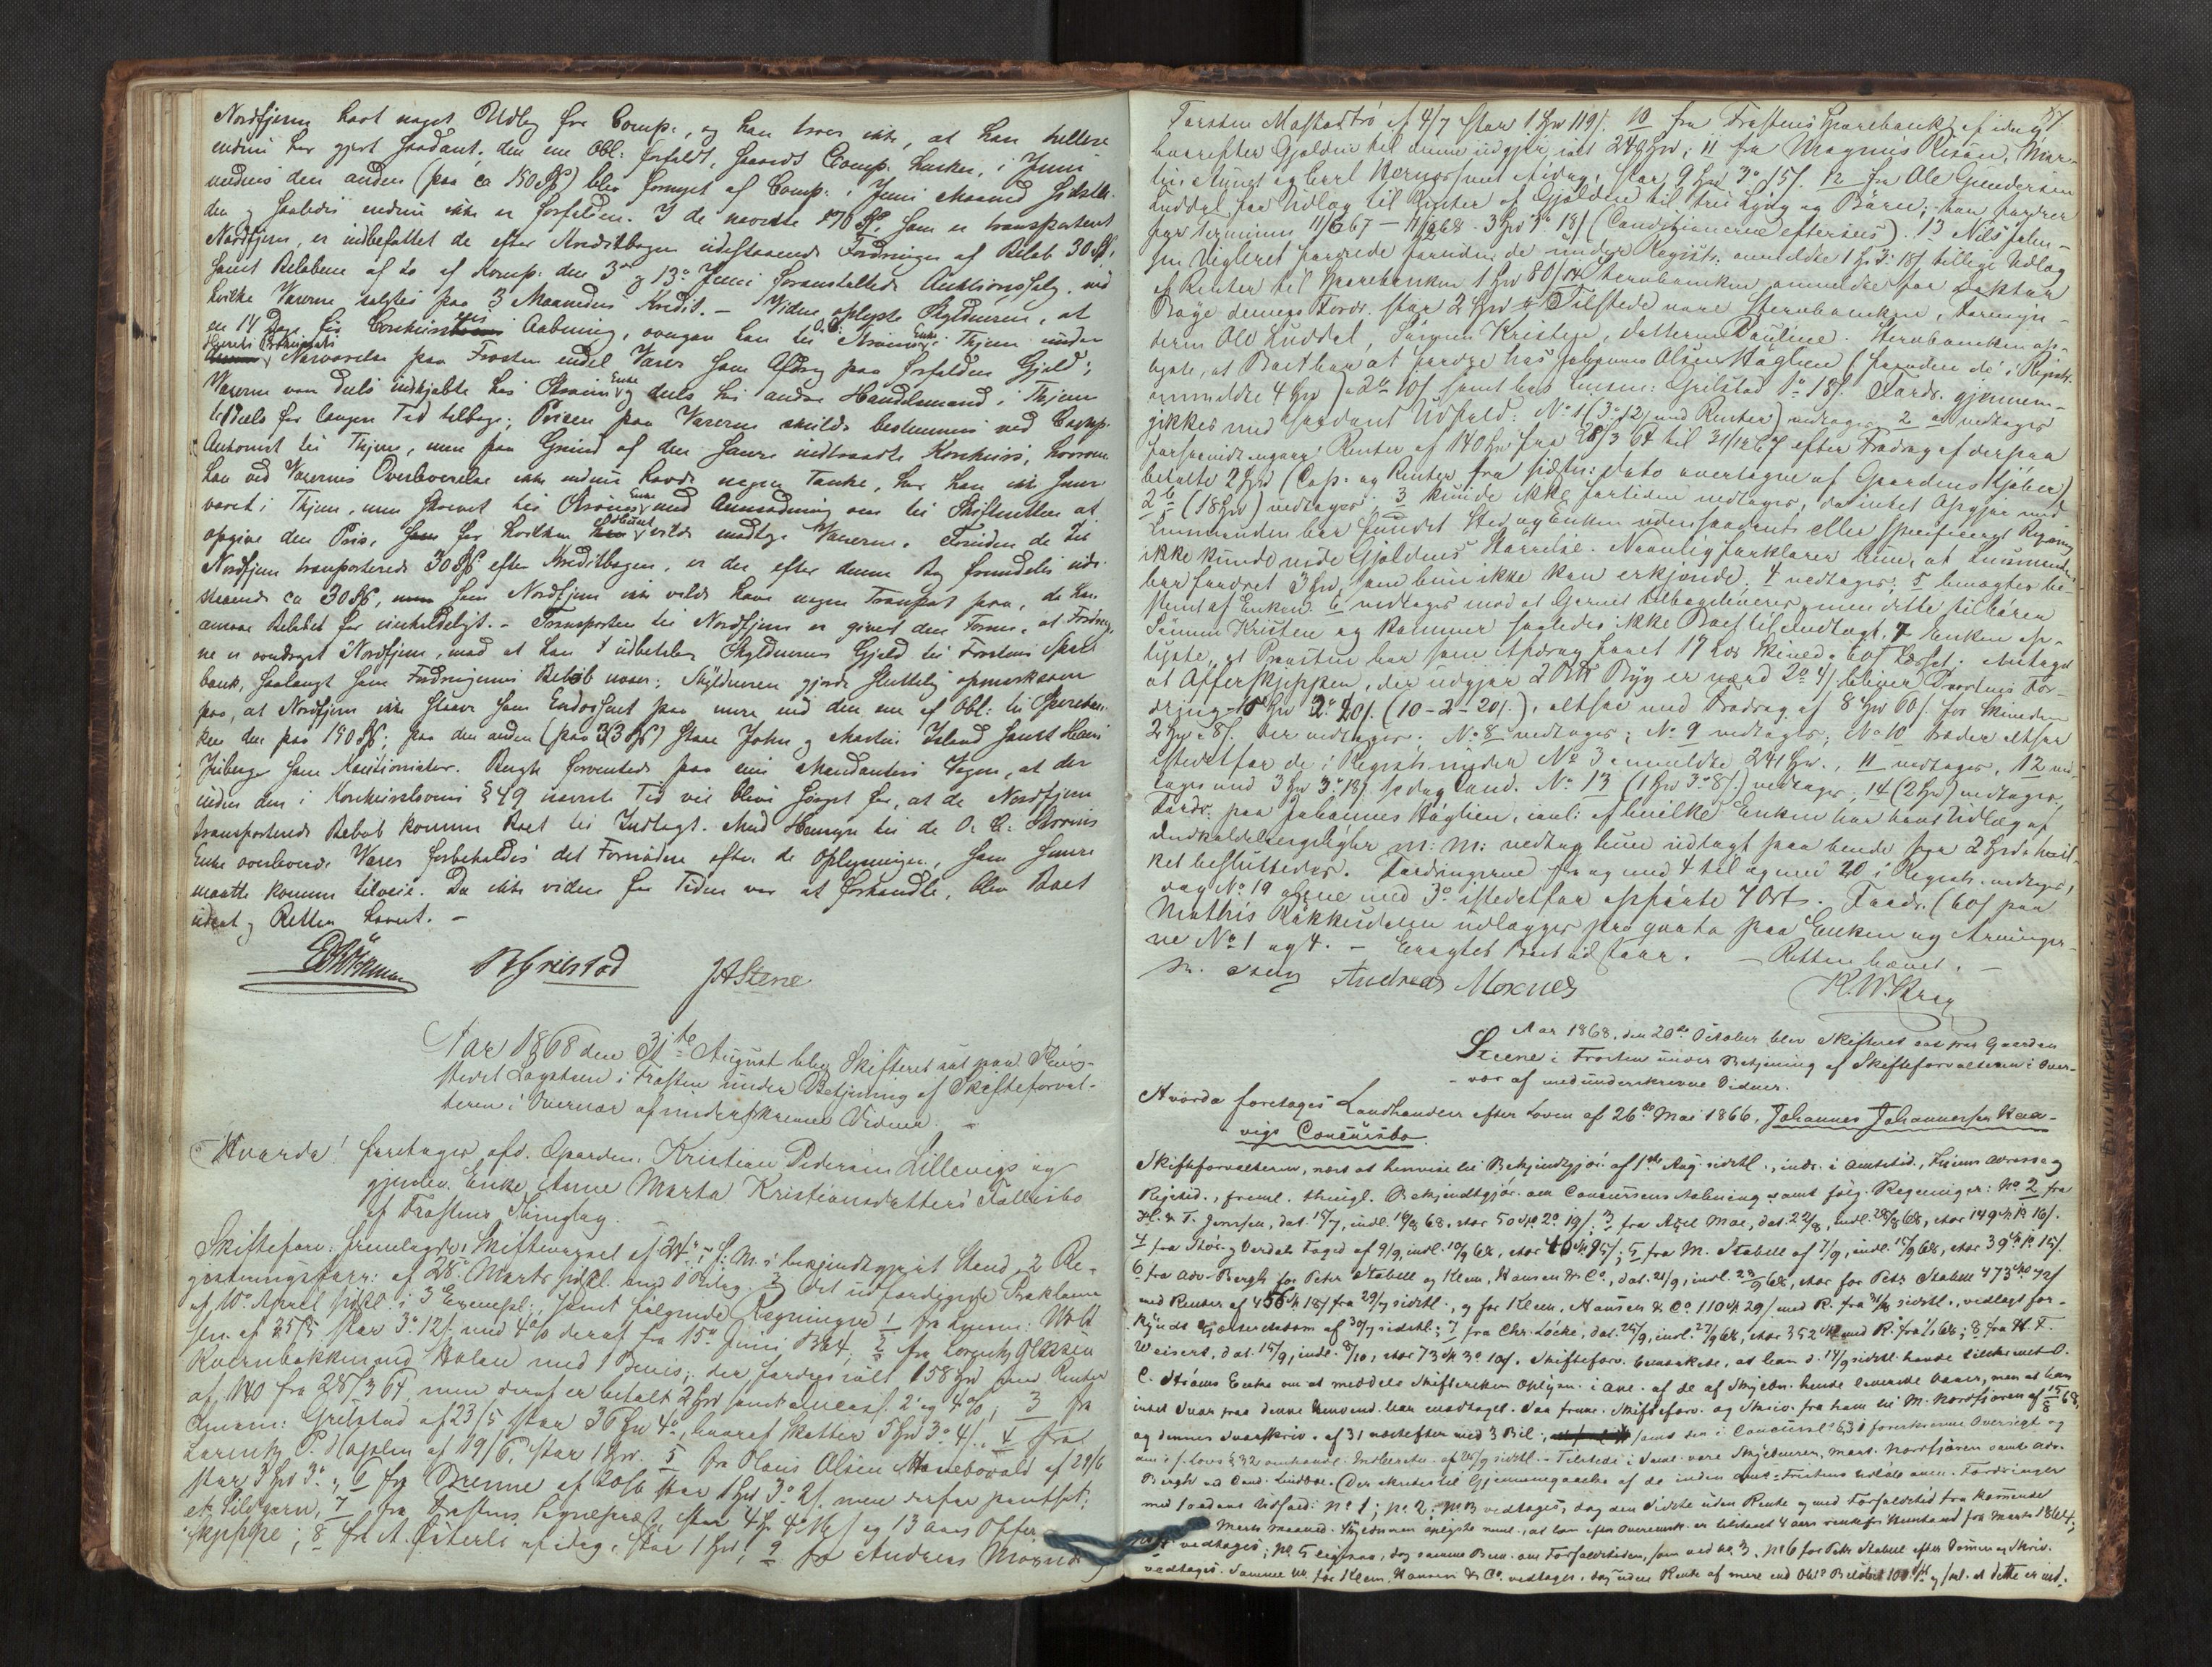 Nordfjern havt noget Udlæg for Comp., og han troer ikke, at han hellere
endnu har gjort saadant; den ene Obl: forfaldt, saavidt Comp. husker, i Juni
medens den anden (paa ca 150 Spd) blev fornyet af Comp. i Juni Maaned sidstl.
den og saaledes endnu ikke er forfalden. I de nævnte 170 Spd, som er transporteret
Nordfjern, er indbefattet de efter Kreditbogen udestaaende Fordringer af Beløb 30 Spd,
samt Beløbene af to af Komp. den 3die og 13de Juni foranstaltede Auktionssalg, ved
hvilke Varerne solgtes paa 3 Maaneders Kredit. – Videre oplyste Skyldneren, at
en 14 Dage før Concursens Aabning, overgav han til O. C. Strøms Enke i Thjem under
Nærværelse paa Frosten endel Varer som Afdrag paa forfalden Gjeld;
Varerne vare dels indkjøbte hos Strøms Enke og dels hos andre Handelsmænd i Thjem
tildels for længere Tid tilbage; Prisen paa Varerne skulde bestemmes ved Comp.
Ankomst til Thjem, men paa Grund af den senere indtraadte Konkurs, hvorom
han ved Varernes Overleverelse ikke endnu havde nogen Tanke, har han ikke senere
været i Thjem, men skrevet til Strøms Enke med Anmodning om til Skifteretten at
opgive den Pris, for hvilken vilde modtage Varerne. Foruden de til
Nordfjern transporterede 30 Spd efter Kreditbogen, er der efter denne Bog fremdeles ude-
staaende ca 30 Spd, som Nordfjern ikke vilde have nogen Transport paa, da han
ansaae Beløbet for uerholdeligt. – Transporten til Nordfjern er givet den Form, at Fordringer-
ne er overdraget Nordfjern, mod at han udbetaler Skyldnerens Gjeld til Frostens Spare-
bank, saalangt som Fordringernes Beløb naaer; Skyldneren gjorde sluttelig opmærksom
paa, at Nordfjern ikke staaer som Endossent paa mere end den ene af Obl: til Spareban-
ken den paa 190 Spd; paa den anden (paa 33 Spd) staae John og Martin Island samt Hans
Juberg som Kautionister. Bergh forventede paa sine Mandanters Vegne, at der
inden den i Konkurslovens § 49 nævnte Tid vil blive sørget for, at de Nordfjern
transporterede Beløb komme Boet til Indtægt. Med Hensyn til de O. C. Strøms
Enke overleverede Varer forbeholdes det Fornødne efter de Oplysninger, som senere
maatte komme tilveie. Da ikke videre for Tiden var at forhandle, blev Boet
udsat og Retten hævet. –
B Grilstad JA Stene
Aar 1868 den 31te August blev Skifteret sat paa Thing-
stedet Logstein i Frosten under Betjening af Skifteforval-
teren i Overvær af underskrevne Vidner. –
Hvorda! foretages afd. Gaardm. Kristian Pedersen Lillevigs og
gjenlev. Enke Anne Marta Kristiansdatters Fallitbo
af Frostens Thinglag.
Skifteforv: fremlagde Skiftevæsnet af 24de f: M: i bekjendtgjort Stend, 2 Re-
gistreringsforr: af 28de Marts sidstl. med 1 Bilag og det udfærdigede Proklama
af 10de April sidstl. i 3 Exempl., samt følgende Regninger 1 fra Lensm: Wold
sen. af 25/5 stor 3o 12s med 4% deraf fra 15de Juni 1864; 2 fra Lorents Olsen
Kvernbakken med Holan med 1 Bevis, der fordres ialt 158 Spd med Renter
af 140 fra 28/3 64, men deraf er betalt 2 Spd samt 2o og 4%; 3 fra
Lensm: Grilstad af 23/5 stor 36 Spd 4o, hvoraf Skatter 5 Spd 3o 4s. 4 fra
Lorents P. Hojolm af 19/6, stor 1 Spd. 5 fra Hans Olsen Manebovald af 29/6
stor 3 Spd 3o; 6 fra Brenne af 20/6 stor 1 Spd 3o 2s. men derfor pantsat;
et Sildgarn, 7 fra Frostens Sognepræst stor 4 Sp 4o 16s og 13 Aars Offer
skjeppe; 8 fra A. Østerli af idag, stor 1 Spd; 9 fra Andreas Moxnes
87
Torsten Mostadtrø af 4/7 stor 1 Spd 119s. 10 fra Frostens Sparebank af idag
hvorefter Gjælden til denne udgjør ialt 248 Spd; 11 fra Magnus Risan, Mar-
tin Aunet og Carl Vernes sen. Aidag, stor 9 Spd 3o 15s. 12 fra Ole Gundersen
Luddal for Udlæg til Renter af Gjælden til og Børn; han fordrer
for Terminen 11/6 67 – 11/12 68. 3 Spd 3o 18s (Conditionerne eftersees). 13 Nils John-
sen Vigleret fordrede foruden de under Registr: anmeldte 1 Sp 3o 18s tillige Udlæg
af Renter til Sparebanken 1 Spd 80s. 14 Kvernbakken anmeldte for Doktor
Røge dennes Fordr. stor 2 Spd. – Tilstede vare Kvernbakken, Formyn-
deren Ole Luddal, Sønnen Kristen, Datteren Pauline. Kvernbakken op-
lyste, at Boet har at fordre hos Johannes Olsen Høglien (foruden de i Registr.
anmeldte 4 Spd) 2o 10s samt hos Lensm: Grilstad 1o 18s. Fordr. gjennem-
gikkes med saadant Udfald: No 1 (3o 12s med Renter) vedtages 2 a vedtages
forsaavidt angaar Renter af 140 Spd fra 28/3 64 til 31/12 67 efter Fradrag af derpaa
betalte 2 Spd (Cap. og Renter fra sidstn: Dato overtagne af Gaardens Kjøber)
2 b (18 Spd) vedtages. 3 kunde ikke fortiden vedtages, da intet Opgjør med
Lensmanden har fundet Sted og Enken uden saadant eller specificeret Regning
ikke kunde vide Gjældens Størrelse. Navnlig forklarer hun, at Lensmanden
har fordret 3 Spd, som hun ikke kan erkjende. 4 vedtages; 5 benægtes be-
stemt af Enken. 6 vedtages mod at Garnet tilbageleveres, men dette tilhører
Sønnen Kristen og kommer saaledes ikke Boet til Indtægt. 7 Enken op-
lyste, at Præsten har som Afdrag faaet 17 Læs Skind à 60s Læsset; Antaget
at Offerskjeppen, der udgjør 2 Btr Byg er værd 2o 4s bliver Præstens For-
dring 10 Spd 2o 20s. (10-2-20s.), altsaa med Fradrag af 8 Spd 60s. for Skinden
2 Spd 8s. der vedtages. No 8 vedtages; No 9 vedtages; No 10 træder altsaa
istedetfor de i Registr. under No 3 anmeldte 241 Spd., 11 vedtages, 12 ved-
tages med 3 Spd 3o 18s. No 13 (1 Spd 3o 8s) vedtages, 14 (2 Spd) vedtages,
Fordr. paa Johannes Høglien, incl: af hvilke Enken har havt Udlæg af
Indkaldelsesgebyhr m: m: vedtog hun udlagt paa hende for 2 Spd, hvil-
ket besluttedes. Fordringerne fra og med 4 til og med 20 i Registr. vedtages,
dog No 19 alene med 3o istedetfor opførte 4 Ort. Fordr. (60s paa
Mathis Røkkesdalen udlægges pro qvota paa Enken og Arvinger-
ne No 1 og 4. – Eragtet Boet udstaar. – Retten hævet. –
Andreas Moxnes K. W. Krag
Aar 1868, den 20de October blev Skifteret sat paa Gaarden
Steene i Frosten under Betjening af Skifteforvalteren i Over-
vær af medunderskrevne Vidner.
Hvorda foretages Landhandler efter Loven af 26de Mai 1866, Johannes Johannessen Haa-
vigs Concursbo.
Skifteforvalteren, næst at henvise til Bekjendtgjør. af 1ste Aug. sidstl., indr. i Amtstid., Thjems Adresse og
Rigstid., freml. thingl. Bekjendtgjør. om Concursens Aabning samt følg. Regninger: No 2 fra
H. & T. Jenssen, dat. 15/7, indl. 18/8 68, stor 50 Spd 2o 19s. 3 fra Axel Moe, dat. 22/8, indl. 28/8 68, stor 149 Spd 16s.
4 fra Stør- og Værdals Foged af 9/9, indl. 10/9 68, stor 40 Spd 95s; 5 fra M. Stabell af 7/9, indl. 15/9 68, stor 39 Spd 15s.
6 fra Adv. Bergh for Petr Stabell og Klem, Hansen & Co, dat. 21/9, indl. 23/9 68, stor for Petr Stabell 473 Spd 72s
med Renter af 456 Spd 18s fra 29/7 sidstl., og for Klem, Hansen & Co 110 Spd 29s med R. fra sidstl., vedlagt for-
kyndt Gjældsdom af 30/7 sidstl.; 7 fra Chr. Löcke, dat. 25/9, indl. 27/9 68, stor 352 Spd med R. fra 68; 8 fra H. F.
Weisert, dat. 15/9, indl. 8/10, stor 73 Spd 3o 10s. Skifteforv. bemærkede, at han d. 14/9 sidstl. havde tilskrevet O.
C. Strøms Enke om at meddele Skifteretten Oplysn. i Anl. af de af Skyldn. hende leverede Varer, men at han
intet Svar paa denne Henvend. har modtaget. Saa freml. Skifteforv. og Skriv. fra ham til M. Nordfjæren af 15/8 68,
og dennes Svarskriv. af 31 næstefter med 3 Bil., samt den i Concursl. § 63 foreskrevne Oversigt og
den i s. Lovs § 32 omhandl. Indberetn. af 26/9 sidstl. – Tilstede i Saml. vare Skyldneren, Mart. Nordfjæren samt Adv.
Bergh ved Cand. Lindboe. Der skredes til Gjennemgaaelse af de inden Ans.-Fristens Udløb anm. Fordringer
med saadant Udfald: No 1; No 2; No 3 vedtages, dog den sidste uden Rente og med Forfaldstid fra kommende
Marts Maaned. Skyldneren oplyste neml., at han efter Overensk. er tilstaaet 4 Aars rentefri Henstand fra Marts 1864;
No 4 vedtages; No 5 ligesaa, dog samme Bem. om Forfaldstiden, som ved No 3. No 6 for Petr Stabell efter Dommen og Skriv.
vedtages. Samme No for Klem, Hansen & Co. vedtages, dog uden Rente af mere end Obl. Beløbet 100 Spd